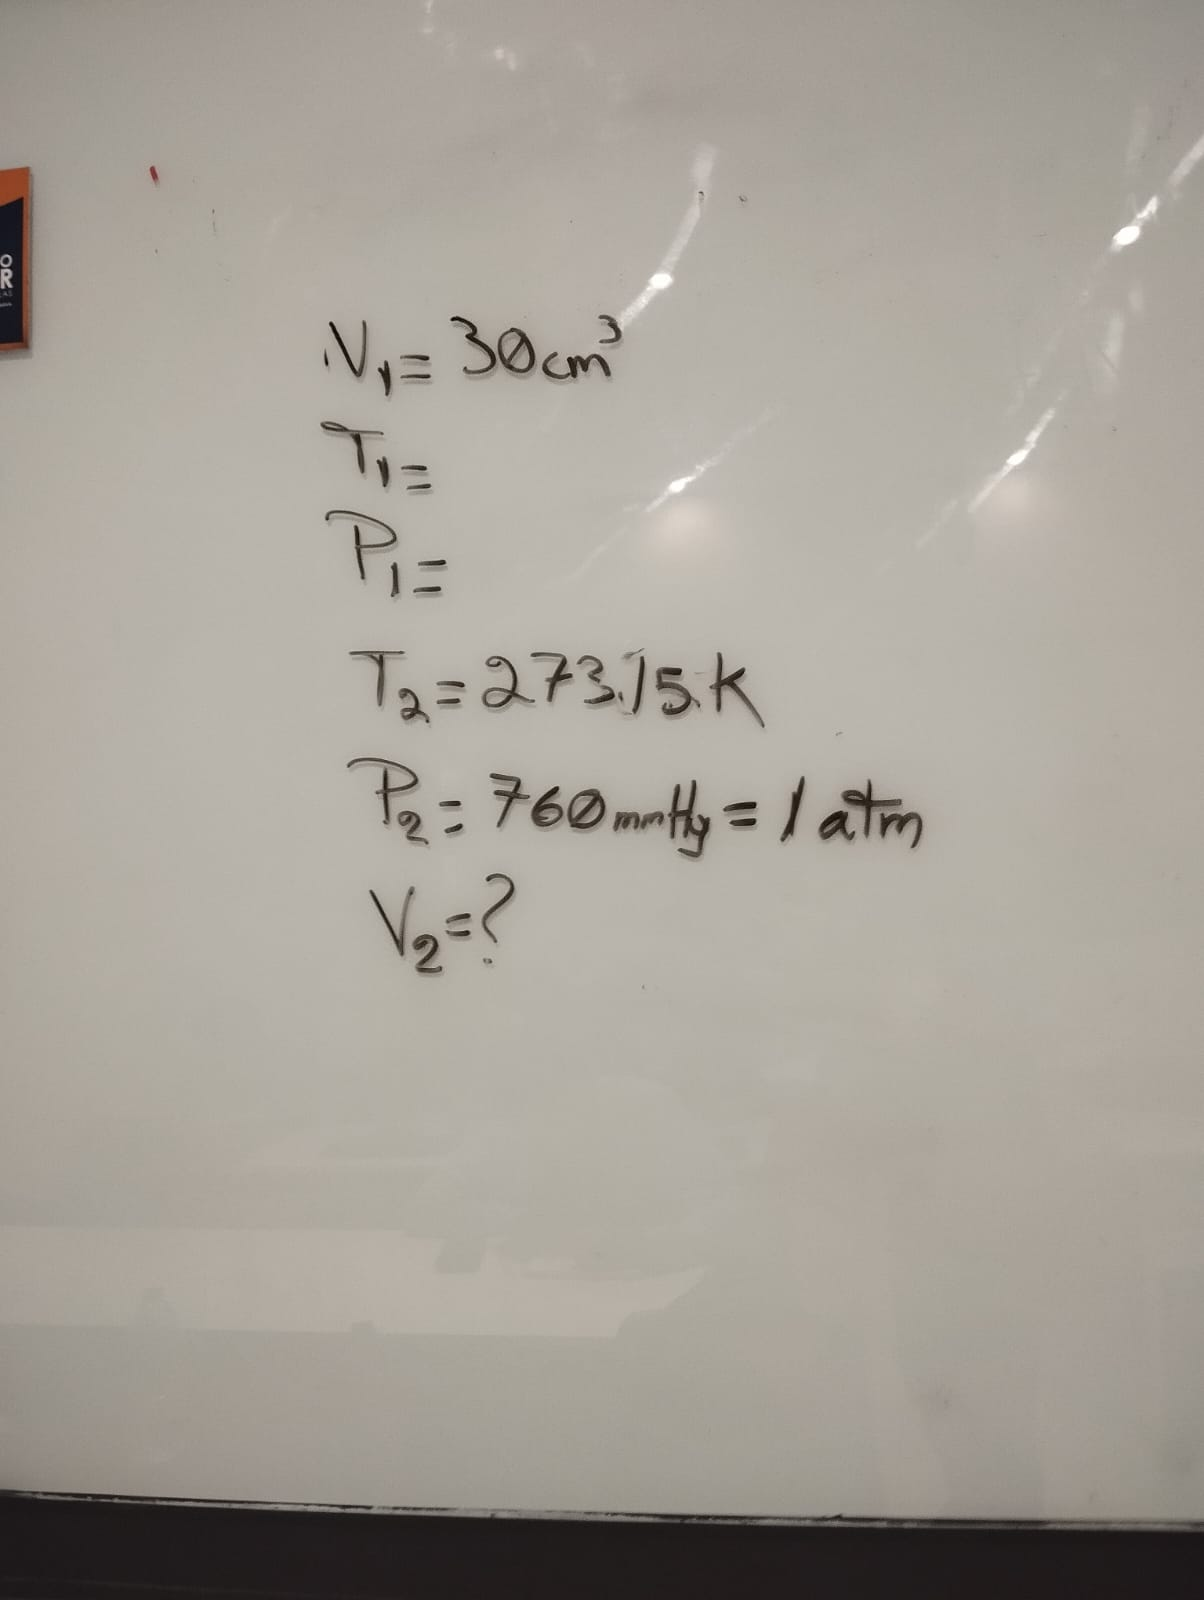 O
R
V₁= 30cm³
T₁=
P₁=
T₂=273.15.K
P₂=760mmHg=1 atm
V₂=?